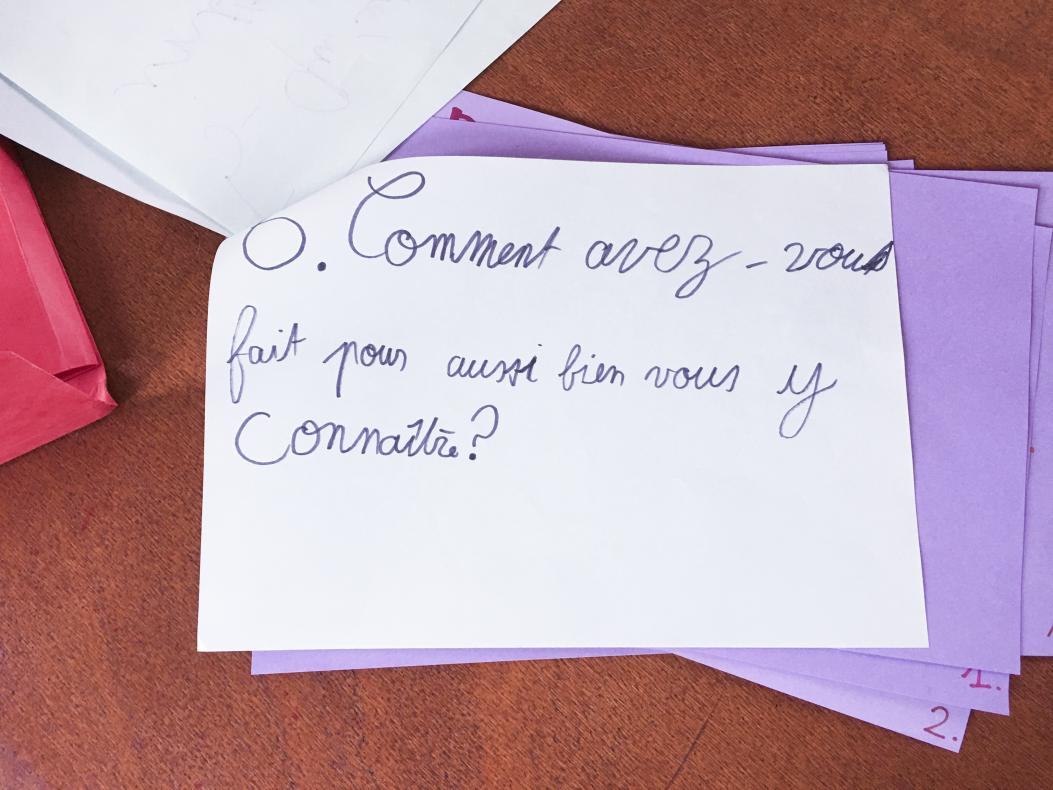 O. Comment avez-vous
fait pour aussi bien vous y
Connaître?
1.
2.